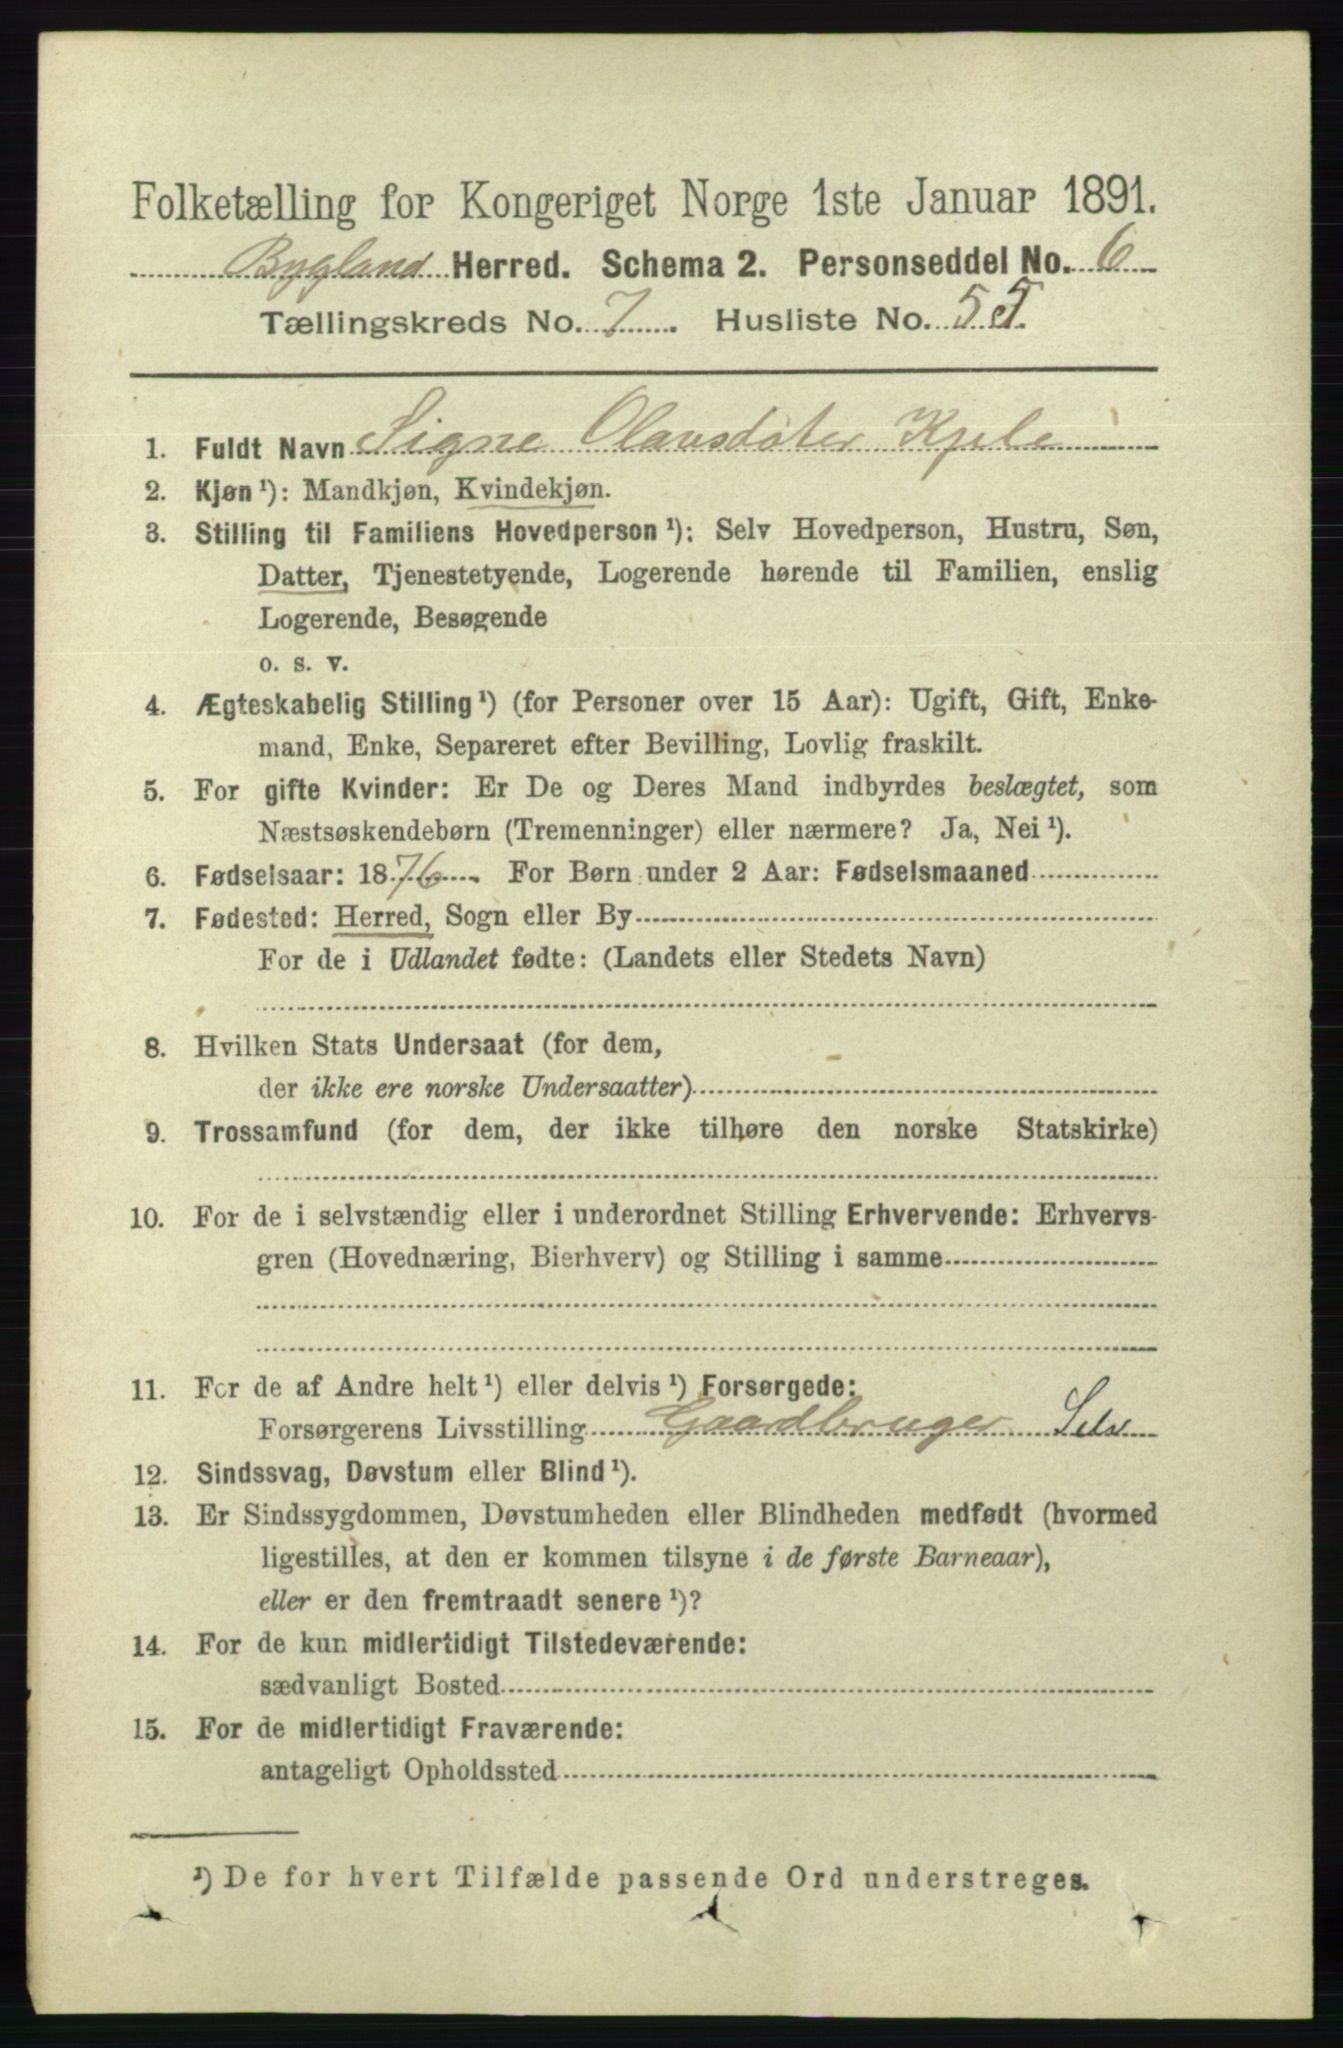 Folketælling for Kongeriget Norge 1ste Januar 1891.
Bygland Herred. Schema 2. Personseddel No. 6
Tællingskreds No. 7. Husliste No. 55.
1. Fuldt Navn Signe Olavsdater Kjele
2. Kjøn¹): Mandkjøn, Kvindekjøn.
3. Stilling til Familiens Hovedperson¹): Selv Hovedperson, Hustru, Søn,
Datter, Tjenestetyende, Logerende hørende til Familien, enslig
Logerende, Besøgende
o. s. v.
4. Ægteskabelig Stilling¹) (for Personer over 15 Aar): Ugift, Gift, Enke-
mand, Enke, Separeret efter Bevilling, Lovlig fraskilt.
5. For gifte Kvinder: Er De og Deres Mand indbyrdes beslægtet, som
Næstsøskendebørn (Tremenninger) eller nærmere? Ja, Nei¹).
6. Fødselsaar: 1876. For Børn under 2 Aar: Fødselsmaaned
7. Fødested: Herred, Sogn eller By
For de i Udlandet fødte: (Landets eller Stedets Navn)
8. Hvilken Stats Undersaat (for dem,
der ikke ere norske Undersaatter)
9. Trossamfund (for dem, der ikke tilhøre den norske Statskirke)
10. For de i selvstændig eller i underordnet Stilling Erhvervende: Erhvervs-
gren (Hovednæring, Bierhverv) og Stilling i samme
11. For de af Andre helt¹) eller delvis¹) Forsørgede:
Forsørgerens Livsstilling Gaardbruger Selv
12. Sindssvag, Døvstum eller Blind¹).
13. Er Sindssygdommen, Døvstumheden eller Blindheden medfødt (hvormed
ligestilles, at den er kommen tilsyne i de første Barneaar),
eller er den fremtraadt senere¹)?
14. For de kun midlertidigt Tilstedeværende:
sædvanligt Bosted
15. For de midlertidigt Fraværende:
antageligt Opholdssted
¹) De for hvert Tilfælde passende Ord understreges.